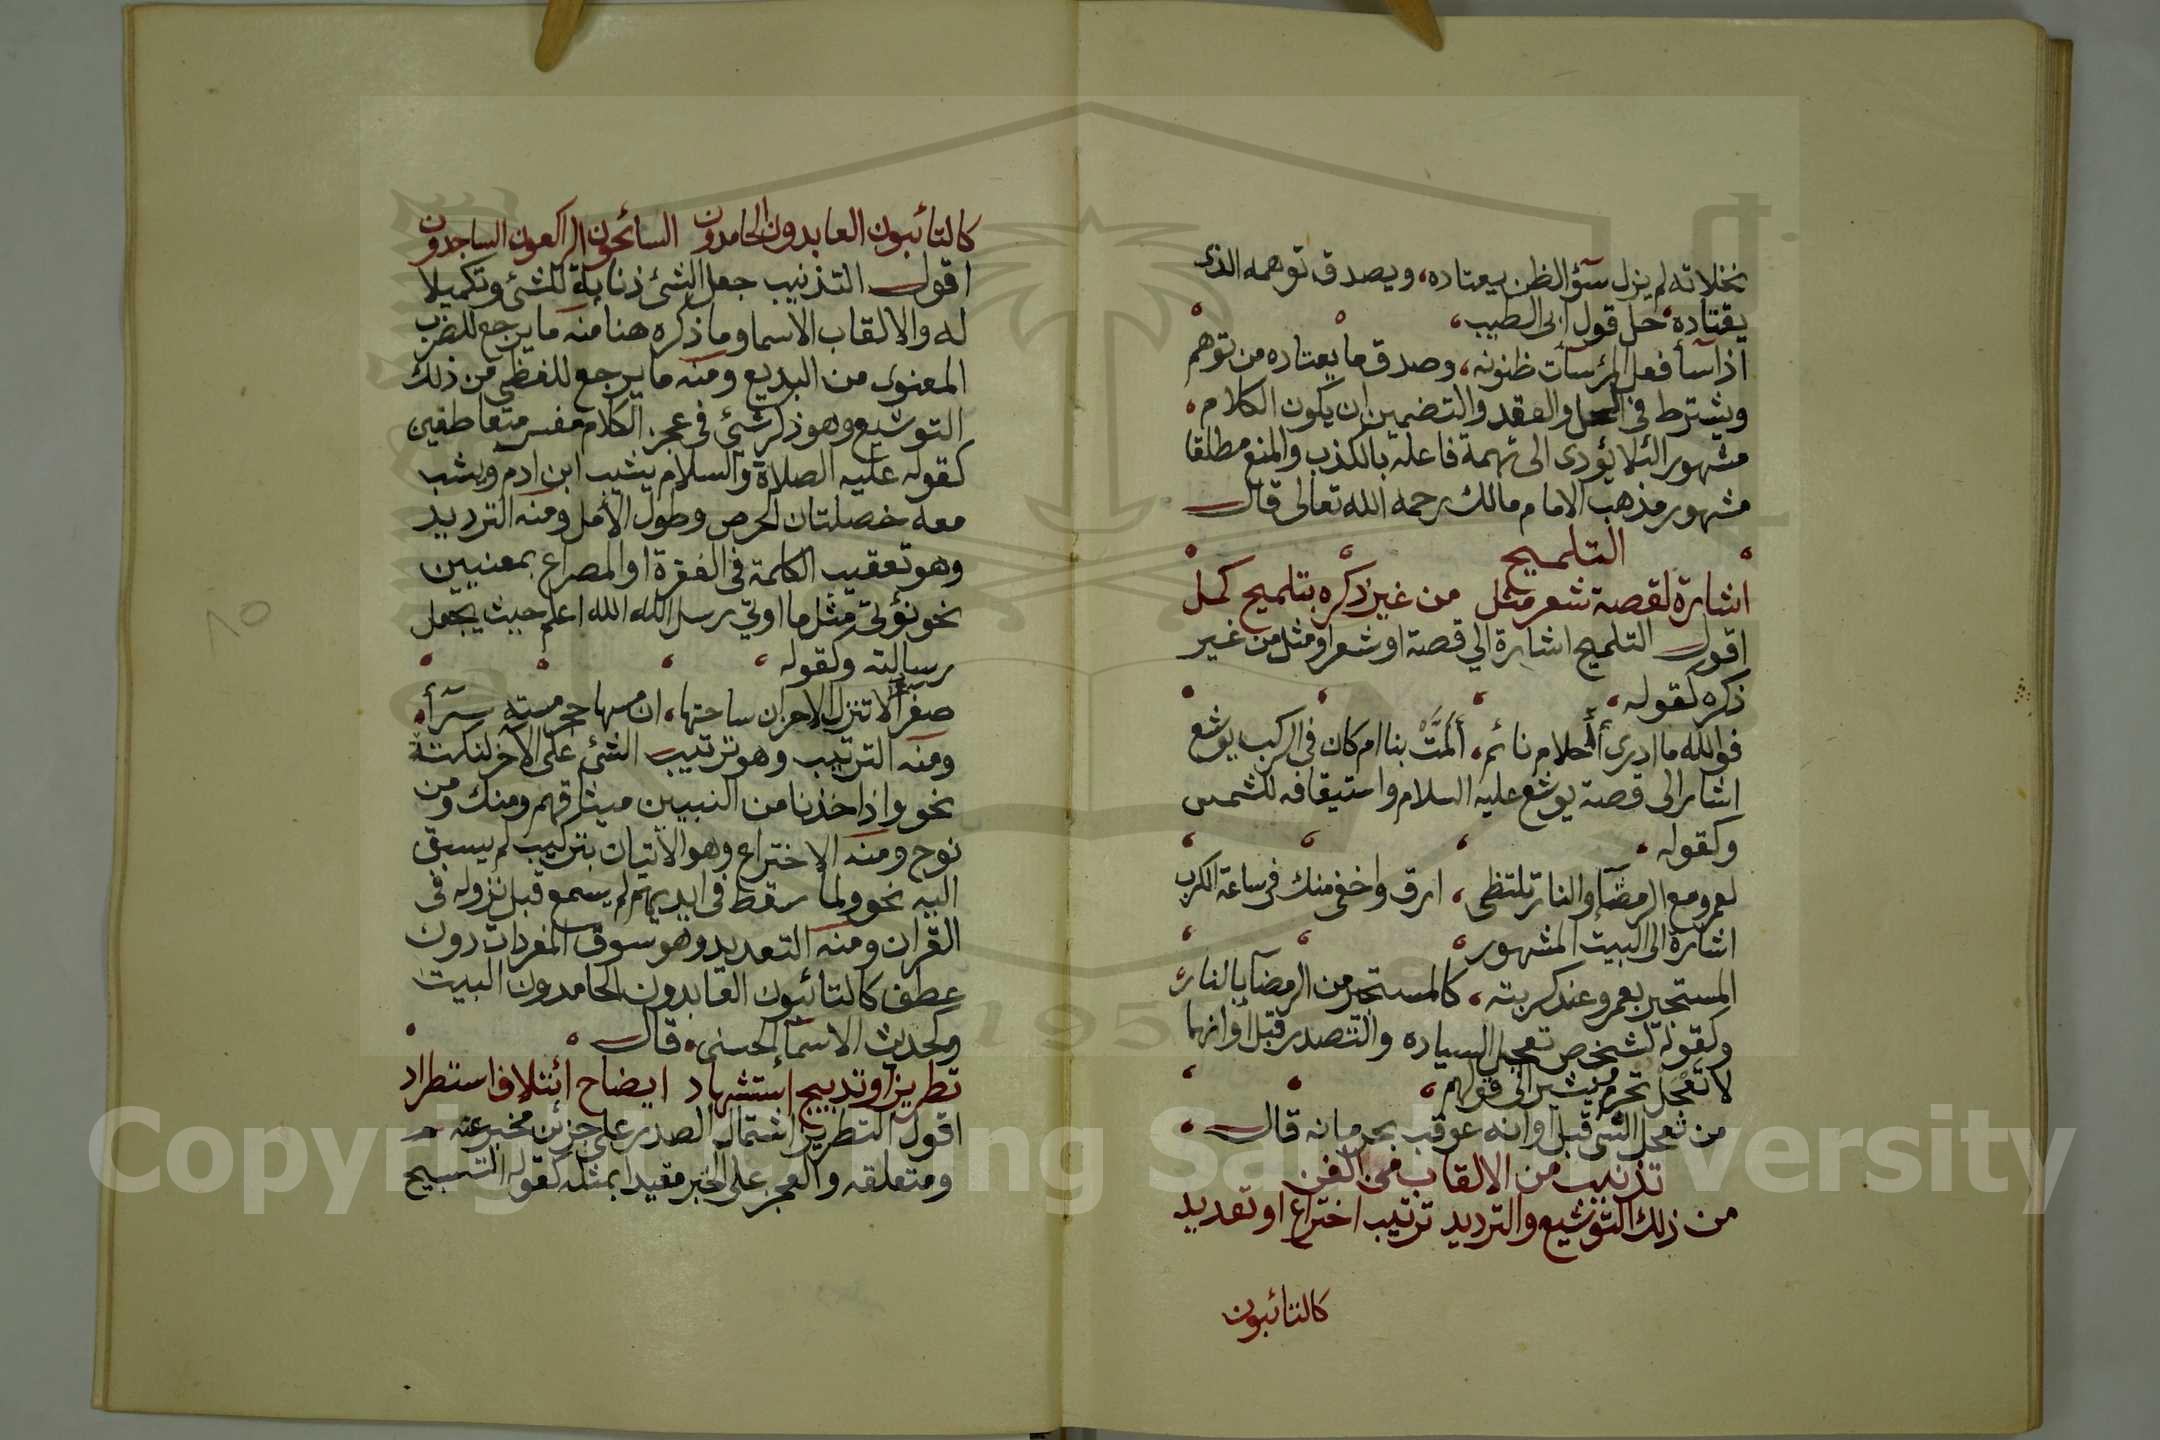 نخلاته لم يزل سؤ الظن يعتاده، ويصدق توهمه الذى
يقتاده حل قول ابى الطيب،
اذا سآ فعل المرسآت ظنونه، وصدق ما يعتاده من توهم
ويشترط فى الحل والعقد والتضمين ان يكون الكلام
مشهورا لئلا يؤدى الى تهمة فاعله بالكذب والمنع مطلقا
مشهور مذهب الامام مالك رحمه الله تعالى قال
التلميح
اشارة لقصة شعر مثل من غير ذكره بتلميح كمل
اقول التلميح اشارة الي قصة او شعر او مثل من غير
ذكره كقوله
فوالله ما ادرى أأحلام نائم، ألمت بنا ام كان فى الركب يوشع
اشار الى قصة يوشع عليه السلام واستيقافه للشمس
وكقوله
لعمرو مع الرمضآ والنار تلتظى، ارق واخفى منك فى ساعة الكرب
اشارة الى البيت المشهور
المستجير بعمرو عند كربته، كالمستجير من الرمضآ بالنار
وكقوله لشخص تعجل السياده والتصدر قبل اوانها
لا تعجل تحرم مشيرا الى قولهم،
من تعجل الشئ قبل اوانه عوقب بحرمانه قال
تذنيب من الالقاب فى الفن
من ذلك التوشيع والترديد ترتيب اختراع او تعديد
كالتائبون
كالتائبون العابدون الحامدون السائحون الراكعون الساجدون
اقول التذنيب جعل الشئ ذنابة للشئ وتكميلا
له والالقاب الاسما وما ذكره هنا منه ما يرجع للضرب
المعنوى من البديع ومنه ما يرجع للفظى من ذلك
التوشيع وهو ذكر شئ فى عجز الكلام مفسر متعاطفين
كقوله عليه الصلاة والسلام يشيب ابن ادم ويشب
معه خصلتان الحرص وطول الأمل ومنه الترديد
وهو تعقيب الكلمة فى الفقرة او المصراع بمعنيين
نحو نؤتى مثل ما اوتي رسل الله الله اعلم حيث يجعل
رسالته وكقوله
صفرآ لا تنزل الاحزان ساحتها، ان مسها حجر مسته سرآ
ومنه الترتيب وهو ترتيب الشئ على الاخر لنكتة
نحو واذ اخذنا من النبيين ميثاقهم ومنك ومن
نوح ومنه الاختراع وهو الاتيان بتركيب لم يسبق
اليه نحو ولما سقط فى ايديهم لم يسمع قبل نزوله فى
القران ومنه التعديد وهو سوق المفردات دون
عطف كالتائبون العابدون الحامدون البيت
وكحديث الاسمآ الحسنى، قال
تطريز او تدبيج استشهاد ايضاح ائتلاف استطراد
اقول التطريز اشتمال الصدر على جزئن مخبر عنه
ومتعلقه والعجز على الخبر مقيدا بمثله كقوله التسبيح
١٥
Copyright © King Saud University
1957